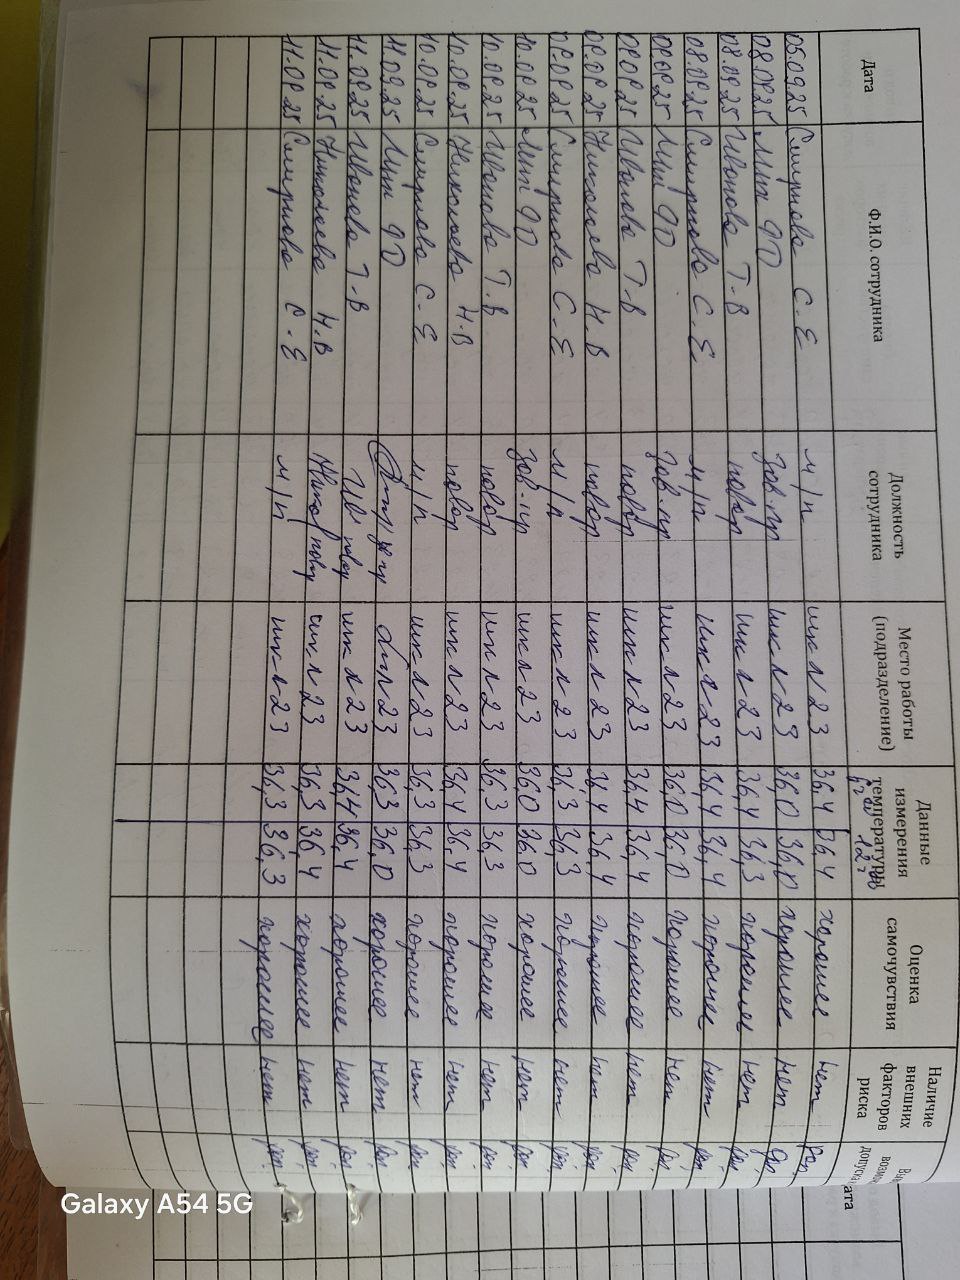 Дата Ф.И.О. сотрудника Должность сотрудника Место работы (подразделение) Данные измерения температуры Оценка самочувствия Наличие внешних факторов риска
05.09.25 Смирнова С.Е м/п шк л 23 36,4 36,4 хорошее нет
08.09.25 ФО зав.пр шк л 23 36,0 36,0 хорошее нет
08.09.25 Иванова Т.В повар шк л 23 36,4 36,3 хорошее нет
08.09.25 Смирнова С.Е м/п шк л 23 36,4 36,4 хорошее нет
09.09.25 ФО зав.пр шк л 23 36,0 36,0 хорошее нет
09.09.25 Иванова Т.В повар шк л 23 36,4 36,4 хорошее нет
09.09.25 Николаева Н.В повар шк л 23 36,4 36,4 хорошее нет
09.09.25 Смирнова С.Е м/п шк л 23 36,3 36,3 хорошее нет
10.09.25 ФО зав.пр шк л 23 36,0 36,0 хорошее нет
10.09.25 Иванова Т.В повар шк л 23 36,3 36,3 хорошее нет
10.09.25 Николаева Н.В повар шк л 23 36,4 36,4 хорошее нет
10.09.25 Смирнова С.Е м/п шк л 23 36,3 36,3 хорошее нет
11.09.25 ФО 36,3 36,0 хорошее нет
11.09.25 Иванова Т.В шк л 23 36,4 36,4 хорошее нет
11.09.25 Николаева Н.В шк л 23 36,3 36,4 хорошее нет
11.09.25 Смирнова С.Е м/п шк л 23 36,3 36,3 хорошее нет
Galaxy A54 5G